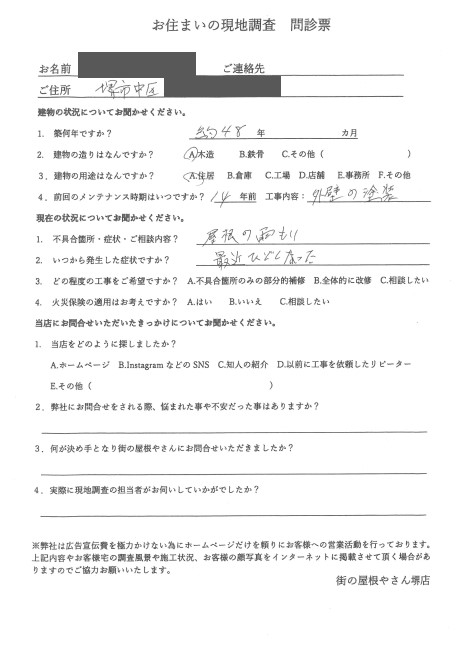 お住まいの現地調査　問診票
お名前　ご連絡先
ご住所　堺市中区
建物の状況についてお聞かせください。
1.　築何年ですか？　約48　年　カ月
2.　建物の造りはなんですか？　A.木造　B.鉄骨　C.その他（　）
3.　建物の用途はなんですか？　A.住居　B.倉庫　C.工場　D.店舗　E.事務所　F.その他
4．前回のメンテナンス時期はいつですか？　14　年前　工事内容：外壁の塗装
現在の状況についてお聞かせください。
1.　不具合箇所・症状・ご相談内容？　屋根の雨もり
2.　いつから発生した症状ですか？　最近ひどくなった
3.　どの程度の工事をご希望ですか？　A.不具合箇所のみの部分的補修　B.全体的に改修　C.相談したい
4.　火災保険の適用はお考えですか？　A.はい　B.いいえ　C.相談したい
当店にお問合せいただいたきっかけについてお聞かせください。
1.　当店をどのように探しましたか？
A.ホームページ　B.Instagram などの SNS　C.知人の紹介　D.以前に工事を依頼したリピーター
E.その他（　）
2．弊社にお問合せをされる際、悩まれた事や不安だった事はありますか？
3．何が決め手となり街の屋根やさんにお問合せいただきましたか？
4．実際に現地調査の担当者がお伺いしていかがでしたか？
※弊社は広告宣伝費を極力かけない為にホームページだけを頼りにお客様への営業活動を行っております。
上記内容やお客様宅の調査風景や施工状況、お客様の顔写真をインターネットに掲載させて頂く場合があ
りますのでご協力お願いいたします。
街の屋根やさん堺店